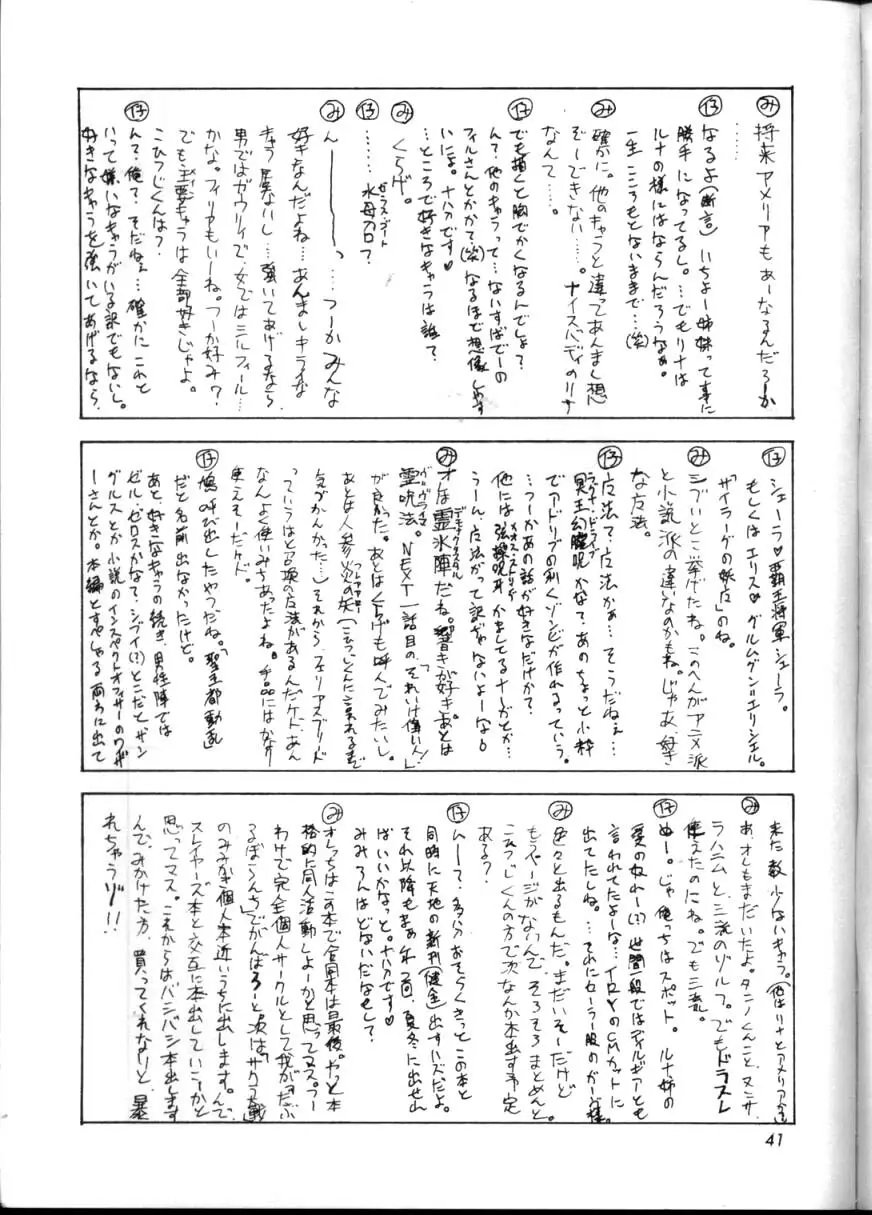 み 将来アメリアもあーなるんだろーか
……
仔 なるよ(断言)いちよー姉妹って事に
勝手になってるし。…でもリナは
ルナの様にはならんだろうなぁ。
一生こころもとないままで…(笑)
み 確かに。他のキャラと違ってあんまし想
ぞーできない……。ナイスバディのリナ
なんて……。
仔 でも描くと胸でかくなるんでしょ?
んで、他のキャラって…ないすばでーの
フィルさんとかかい?(笑)なるほど想像しやす
いによ。十八刀です♡
…ところで好きなキャラは誰?
み くらげ。
仔 ……水母刀口?
み ん――――っ…つーかみんな
好きなんだよね…あんましキライな
きゃら居ないし…強いてあげるなら、
男ではガウリイで、女ではミルフィール…
かな。フィリアもいーね。つーか好み?
でも、主要キャラは全部好きじゃよ。
こひつじくんは?
仔 んで、俺で、そだねぇ…確かにこれと
いって嫌いなキャラがいる訳でもないし。
好きなキャラを強いてあげるなら、
仔 シェーラ♡覇王将軍シェーラ。
もしくはエリス♡グルムグン=エリシエル。
「サイラーグの妖妃」のね。
み シブいとこ挙げたね。このへんがアニメ派
と小説派の違いなのかもね。じゃあ、好き
な方法。
仔 方法で、方法かぁ…そうだねぇ…
冥王幻朧呪かなで、あのちょっと小粋
でアドリブの利くゾンビが作れるっていう。
…つーかあの話が好きなだけか?
他には強操呪牙かましてるナーガとか…
うーん、方法がって訳じゃないよーな。
み オレは霊氷陣だね。響きが好き。あとは
霊呪法。NEXT一話目の「それいけ偉い人!」
が良かった。あとはくらげも呼んでみたいし。
あとは人参炎の矢(こひつじくんに言われるまで
気づかんかった…)それから、フェリアスブリード
っていうはと召喚の方法があるんだケド、あん
なんよく使いみちあったよね。手品にはかなり
使えそーだケド。
仔 鳩呼び出したやつだね。「聖王都動乱」
だと名前出なかったけど。
あと、好きなキャラの続き、男性陣では
ゼル・ゼロスかなで、シブイ(?)とこだとザン
グルスとか小説のインスペクトオフィサーのワイザ
ーさんとか。本編とすぺしゃる両方に出て
来た数少ないキャラ。(他はリナとアメリア
み あ、オレもまだいたよ。タニノくんこと、ヌンサ、
ラハニムと、三流のゾルフ。でもドラスレ
使えたのにね。でも三流。
仔 ぬー。じゃ俺っちはスポット。ルナ姉の
愛の奴れー(?)世間一般ではディルギアとも
言われてたよーな…イロイロのCMカットに
出てたしね。…それにセーラー服のガーヴ様。
み 色々と出るもんだ。まだいそーだけど
もうページがないんで、そろそろまとめんと。
こひつじくんの方で次なんか本出す予定
ある?
仔 ムーーで、多分おそらくきっとこの本と
同時に天地の新刊(健全)出すハズだよ。
それ以降もまぁ年2回、夏冬に出せれ
ばいいかなっと。十八刀です♡
みみろんはどないだなもして?
み オレっちはこの本で合同本は最後。やっと本
格的に同人活動しよーかと思ってマス。つー
わけで完全個人サークルとして我が「だぶ
るぽこらんち」でがんばろーと、次は「サクラ大戦」
のみみなぎ個人本近いうちに出します。んで、
スレイヤーズ本と交互に本出していこーかと
思ってマス。これからはバシバシ本出します
んで、みかけた方、買ってくれないと、暴
れちゃうゾ!!
41